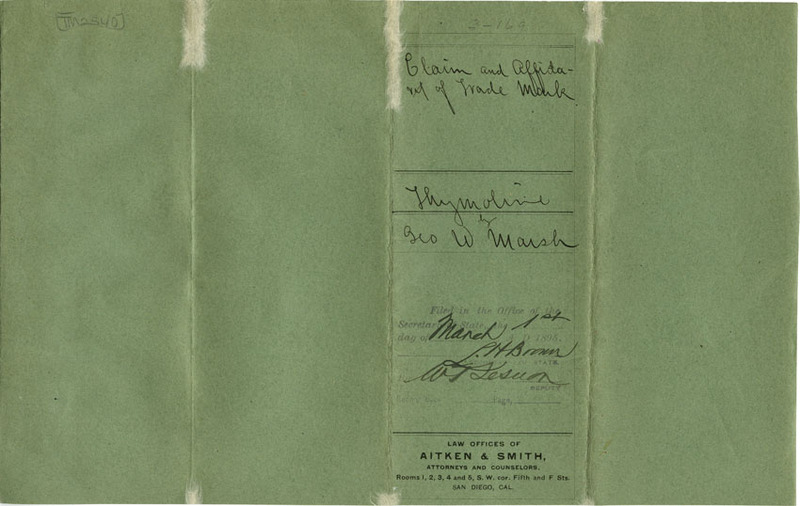 TM2340
3-160
Claim and Affida-
vit of Trade Mark
Thymoline
by
Geo W Marsh
Filed in the Office of the
Secretary State
March 1st
day of 1895
STATE
DEPUTY
LAW OFFICES OF
AITKEN & SMITH,
ATTORNEYS AND COUNSELORS,
Rooms 1, 2, 3, 4 and 5, S. W. cor. Fifth and F Sts.
SAN DIEGO, CAL.